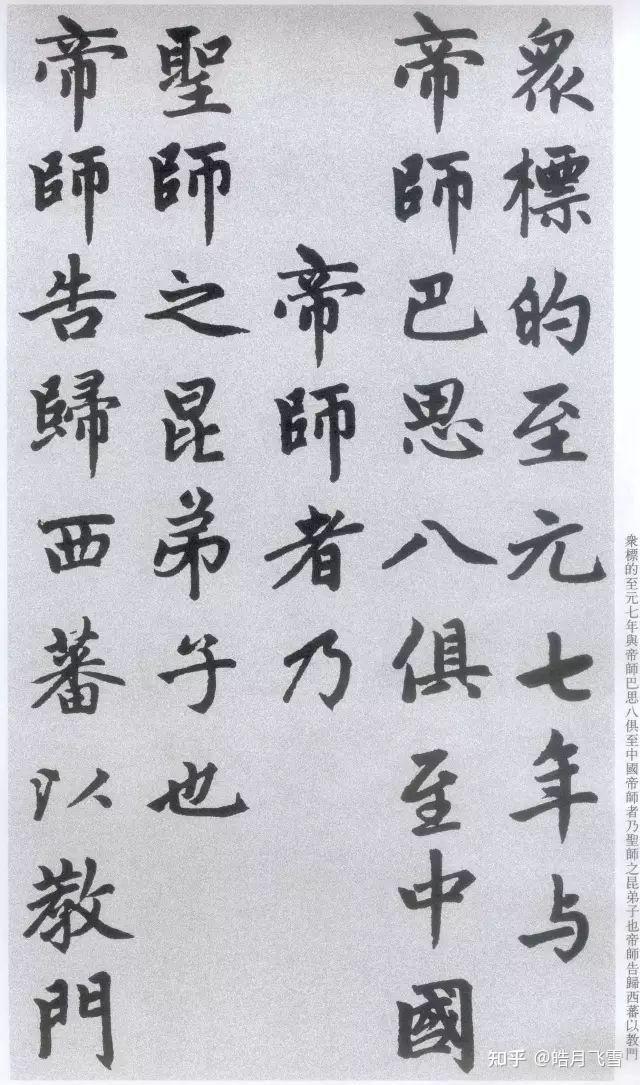 衆標的至元七年与
帝師巴思八俱至中國
帝師者乃
聖師之昆弟子也
帝師告歸西蕃以教門
衆標的至元七年與帝師巴思八俱至中國帝師者乃聖師之昆弟子也帝師告歸西蕃以教門
知乎 @皓月飞雪